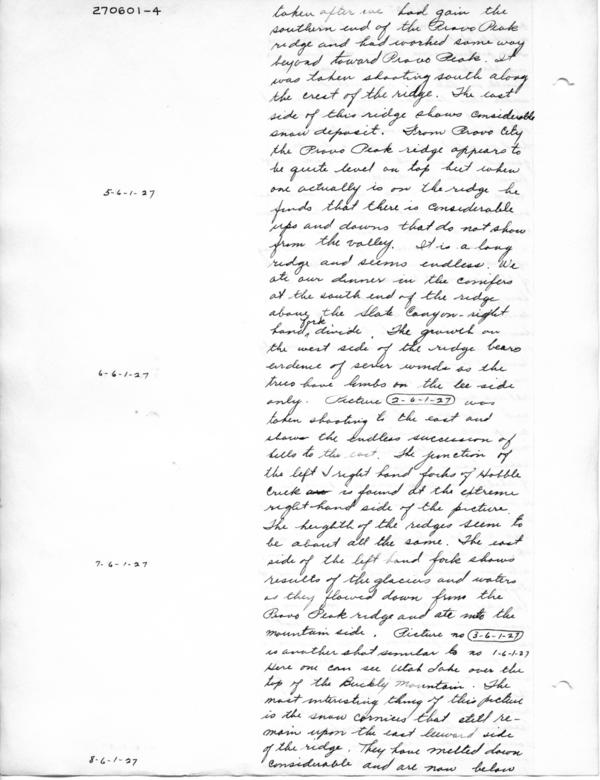 270601-4
taken after we had gain the
southern end of the Provo Peak
ridge and had worked some way
beyond toward Provo Peak. It
was taken shooting south along
the crest of the ridge. The east
side of this ridge shows considerable
snow deposit. From Provo City
the Provo Peak ridge appears to
be quite level on top but when
5-6-1-27
one actually is on the ridge he
finds that there is considerable
ups and downs that do not show
from the valley. It is a long
ridge and seems endless. We
ate our dinner in the conifers
at the south end of the ridge
above the Slate Canyon-right
hand fork divide. The growth on
the west side of the ridge bears
evidence of sever winds as the
6-6-1-27
trees have limbs on the lee side
only. Picture 2-6-1-27 was
taken shooting to the east and
shows the endless succession of
hills to the east. The junction of
the left & right hand forks of Hobble
Creek is found at the extreme
right-hand side of the picture.
The heighth of the ridges seem to
be about all the same. The east
7-6-1-27
side of the left hand fork shows
results of the glaciers and waters
as they flowed down from the
Provo Peak ridge and ate into the
mountain side. Picture no 3-6-1-27
is another shot similar to no 1-6-1-27
Here one can see Utah Lake over the
top of the Buckly Mountain. The
most interesting thing of this picture
is the snow cornices that still re-
main upon the east leeward side
of the ridge. They have melted down
8-6-1-27
considerable and are now below